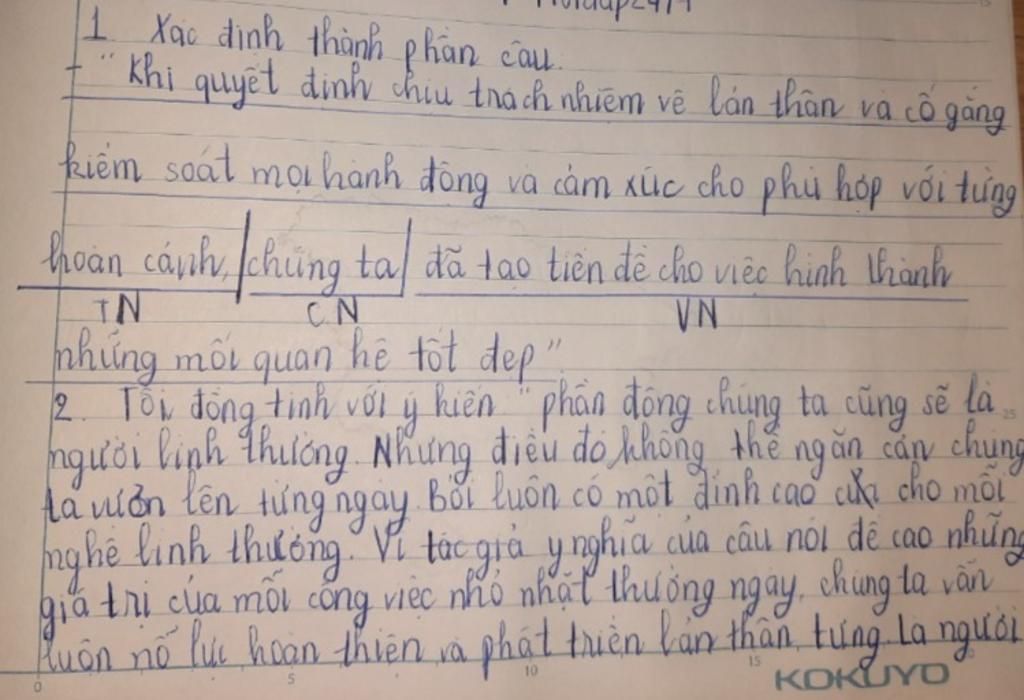 1 Xác định thành phần câu.
+ "Khi quyết định chịu trách nhiệm về bản thân và cố gắng
kiểm soát mọi hành động và cảm xúc cho phù hợp với từng
hoàn cảnh, chúng ta đã tạo tiền đề cho việc hình thành
TN CN VN
những mối quan hệ tốt đẹp"
2. Tôi đồng tình với ý kiến "phần đông chúng ta cũng sẽ là
người bình thường. Nhưng điều đó không thể ngăn cản chúng
ta vươn lên từng ngày. Bởi luôn có một đỉnh cao cho mỗi
nghề bình thường. Vì tác giả ý nghĩa của câu nói đề cao những
giá trị của mỗi công việc nhỏ nhặt thường ngày, chúng ta vẫn
luôn nỗ lực hoàn thiện và phát triển bản thân từng. Là người
0 5 10 15
KOKUYO